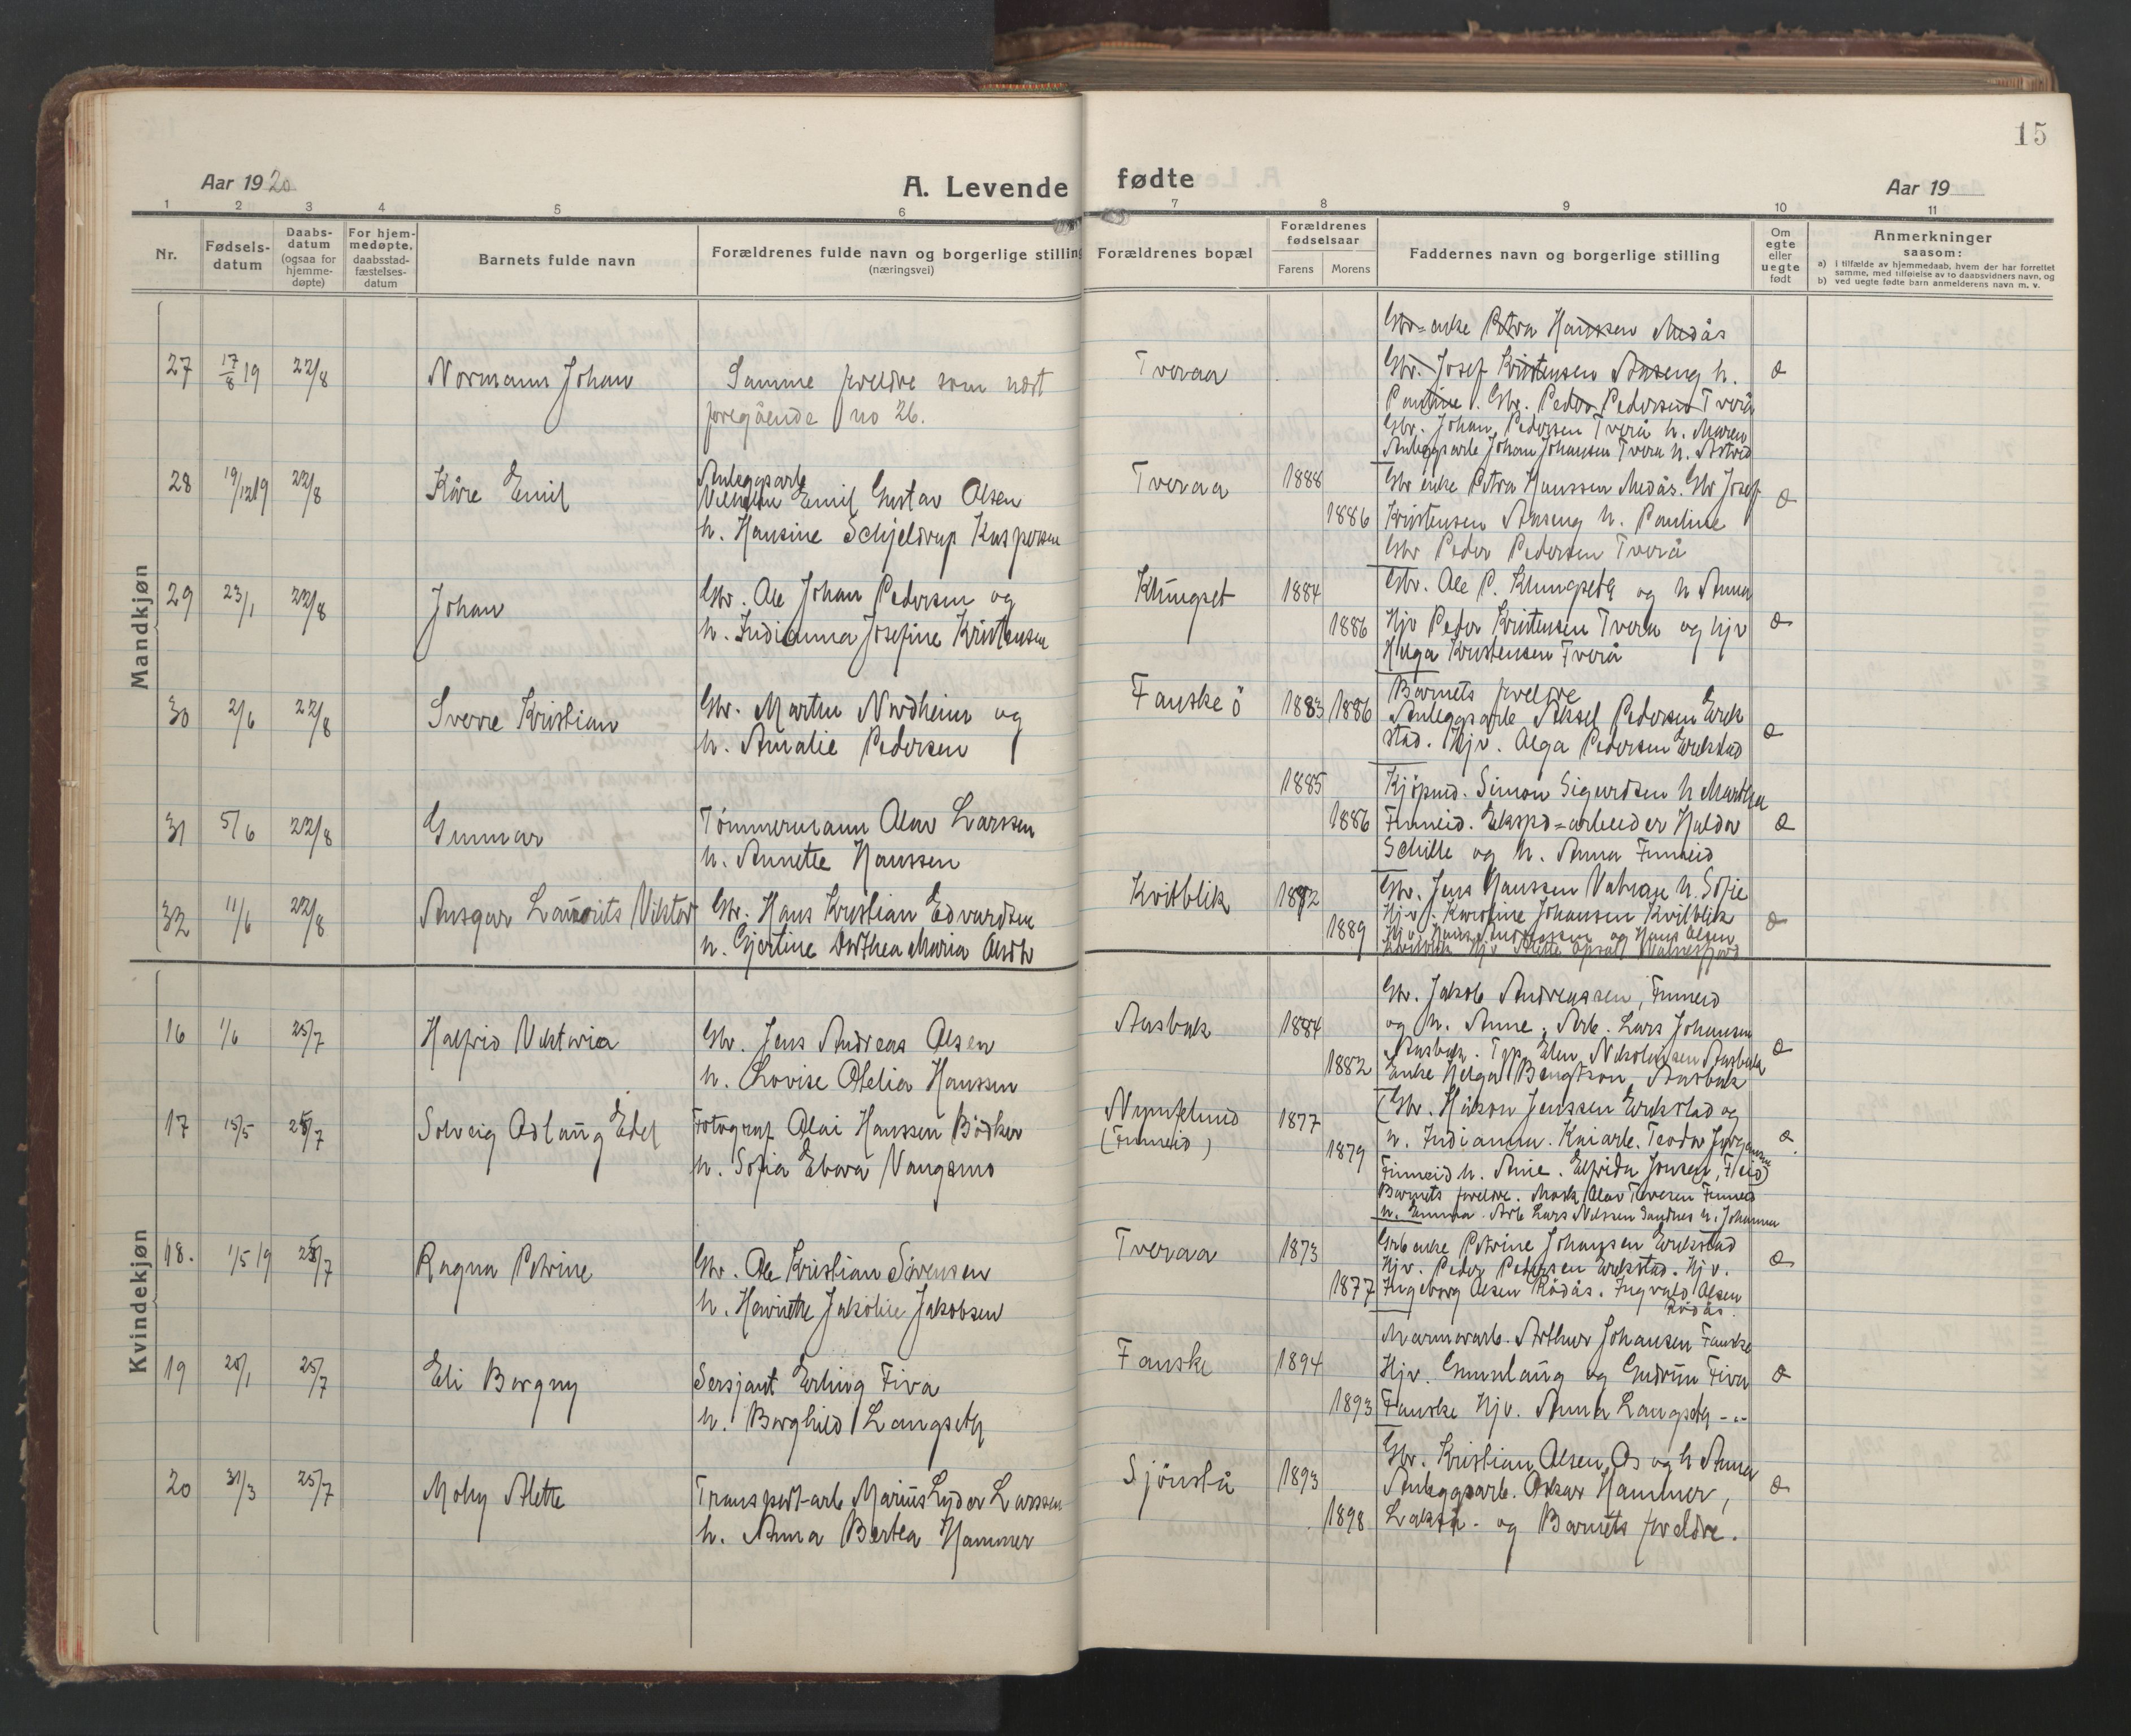 15
Aar 1920
A. Levende
fødte
Aar 19
1 2 3 4 5 6 7 8 9 10 11
Nr.
Fødsels-
datum
Daabs-
datum
(ogsaa for
hjemme-
døpte)
For hjem-
medøpte,
daabsstad-
fæstelses-
datum
Barnets fulde navn
Forældrenes fulde navn og borgerlige stilling
(næringsvei)
Forældrenes bopæl
Forældrenes
fødselsaar
Farens Morens
Faddernes navn og borgerlige stilling
Om
egte
eller
uegte
født
Anmerkninger
saasom:
a) i tilfælde av hjemmedaab, hvem der har forrettet
samme, med tilføielse av to daabsvidners navn, og
b) ved uegte fødte barn anmelderens navn m. v.
Mandkjøn
27 17/8 19 22/8 Normann Johan
Samme foreldre som næst
foregående no 26.
Tveraa
Gbr=enke Petra Hanssen Medås
Gbr. Josef Kristensen Aaseng h.
Pauline. Gbr. Peder Pedersen Tverå
Gbr. Johan Pedersen Tverå h. Maren
Anleggsarb Johan Johansen Tvera h. Astrid
28 19/12 19 22/8 Kåre Emil
Anleggsarb
Vilhelm Emil Gustav Olsen
h. Hansine Schjeldrup Kaspersen
Tveraa 1888 1886
Gbr enke Petra Hanssen Medås. Gbr Josef
Kristensen Aaseng h. Pauline
Gbr Peder Pedersen Tverå
29 23/1 22/8 Johan
Gbr. Ole Johan Pedersen og
h. Indianna Josefine Kristensen
Klungset 1884 1886
Gbr. Ole P. Klungseth og h Anna
Hjv Peder Kristensen Tvera og hjv
Helga Kristensen Tverå
30 2/6 22/8 Sverre Kristian
Gbr. Martin Nordheim og
h. Amalie Pedersen
Fauske ö 1883 1886
Barnets foreldre
Anleggsarb Aksel Pedersen Erik
stad. Hjv. Olga Pedersen Erikstad
31 5/6 22/8 Gunnar
Tømmermann Olav Larssen
h. Annette Hanssen
1885 1886
Kjøpmd. Simon Sigurdsen h Martha
Finneid. Ekspd=arbeider Haldor
Schille og h. Anna Finneid
32 11/6 22/8 Ansgar Laurits Viktor
Gbr. Hans Kristian Edvardsen
h. Gjertine Dorthea Maria
Kvitblik 1882 1889
Gbr. Jens Hanssen h. Sofie
Hjv. Karoline Johansen Kvitblik
Hjv. og Hans Olsen
Kvitblik Hjv Alette Opsal Valnesfjord
Kvindekjøn
16 1/6 25/7 Halfrid Viktoria
Gbr. Jens Andreas Olsen
h. Lovise Otelia Hanssen
Aasbak 1884 1882
Gbr. Jakob Andreassen, Finneid
og h. Anne. Arb. Lars Johansen
Aasbak. Elen Nikolaisen Aasbak
Enke Helga Bengtson Aasbak
17 15/5 25/7 Solveig Odlaug Edel
Fotograf Olai Hanssen Bödker
h. Sofia Ebara Vangsmo
Nymfelund
(Finneid)
1877 1879
(Gbr. Håkon Jenssen Erikstad og
h. Indianna. Kaiarb. Teodor Jørgensen
Finneid h. Anie. Elfrida Jonsen, F/eid)
Barnets foreldre. Mask Olav Iversen Finneid
h. Emma. Arb Lars Nilssen Sandnes h. Johanna
18. 1/5 19 25/7 Ragna Petrine
Gbr. Ole Kristian Sørensen
h. Henriette Jakobie Jakobsen
Tveraa 1873 1877
Gbr enke Petrine Johansen Erikstad
Hjv. Peder Pedersen Erikstad. Hjv.
Ingeborg Olsen Rödås. Ingvald Olsen
Rödås.
19 20/1 25/7 Eli Borgny
Sersjant Erling Fiva
h. Borghild Langseth
Fauske 1894 1893
Marmorarb. Arthur Johansen Fauske
Hjv. Gunnlaug og Gudrun Fiva
Fauske Hjv. Anna Langseth - " -
20 31/3 25/7 Moly Alette
Transport-arb Marius Lyder Larssen
h. Anna Berthea Hammer
Sjönstå 1893 1898
Gbr. Kristian Olsen Os og h Anna
Anleggsarb. Oskar Hammer,
Lakså. og Barnets foreldre.